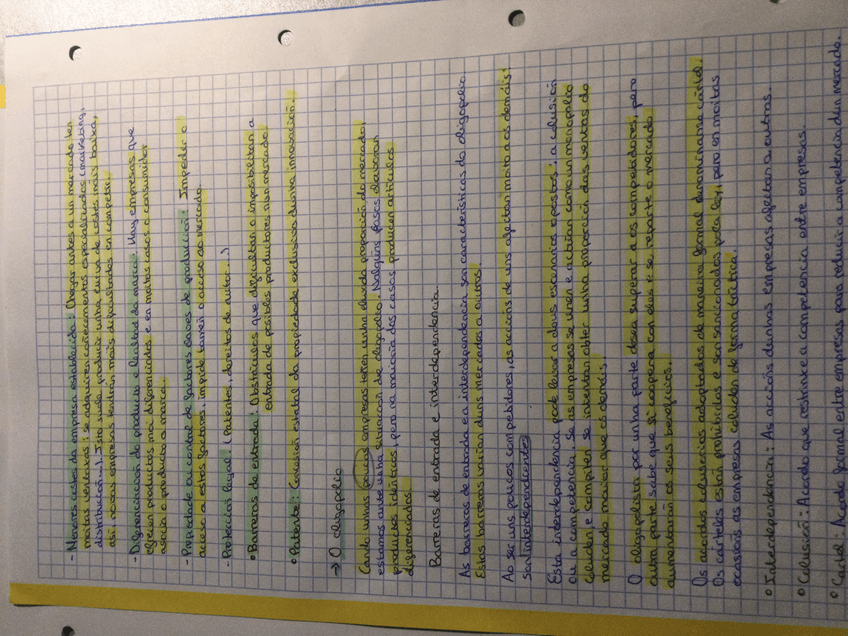 - Menores custes da empresa establecida: Chegar antes a un mercado ten
moitas vantaxes: se adquiren coñecementos especializados (marketing,
distribución...). Isto pode producir unha curva de custes máis baixa,
así, novas empresas terían máis dificultades en competir.
- Diferenciación do producto e lealtad da marca: Hay empresas que
ofrecen productos moi diferenciados e en moitos casos o consumidor
asocia o producto a marca.
- Propiedade ou control de factores claves de producción: Impedir o
acceso a estes factores, impide tamén o acceso ao mercado.
- Protección legal: (Patentes, dereitos de autor...)
• Barreiras de entrada: Obstáculos que dificultan o imposibilitan a
entrada de posibles productores nun mercado.
• Patente: Concesión estatal da propiedade exclusiva dunha innovación.
→ O oligopolio
Cando unhas poucas empresas teñen unha elevada proporción do mercado,
estamos ante unha situación de oligopolio. Nalgúns casos elaboran
productos idénticos, pero na maioría dos casos producen artículos
diferenciados.
Barreiras de entrada e interdependencia
As barreiras de entrada e a interdependencia son características do oligopolio.
Estas barreiras varían duns mercados a outros.
Ao ser uns poucos competidores, as accións de uns afectan moito aos demáis:
son interdependentes
Esta interdependencia pode levar a dous escenarios opostos: a colusión
ou a competencia. Se as empresas se unen e actúan como un monopolio
coluden e compiten se intentan obter unha proporción das ventas do
mercado maior que os demáis.
O oligopolista por unha parte desea superar a os competidores, pero
outra parte sabe que si coopera con eles e se reparte o mercado
aumentarían os seus beneficios.
Os acordos colusivos adoptados de maneira formal denomínanse cártel.
Os cárteles están prohibidos e son sancionados pola ley, pero en moitas
ocasións as empresas coluden de forma tácita.
• Interdependencia: As accións dunhas empresas afectan a outras.
• Colusión: Acordo que restrinxe a competencia entre empresas.
• Cartel: Acordo formal entre empresas para reducir a competencia dun mercado.